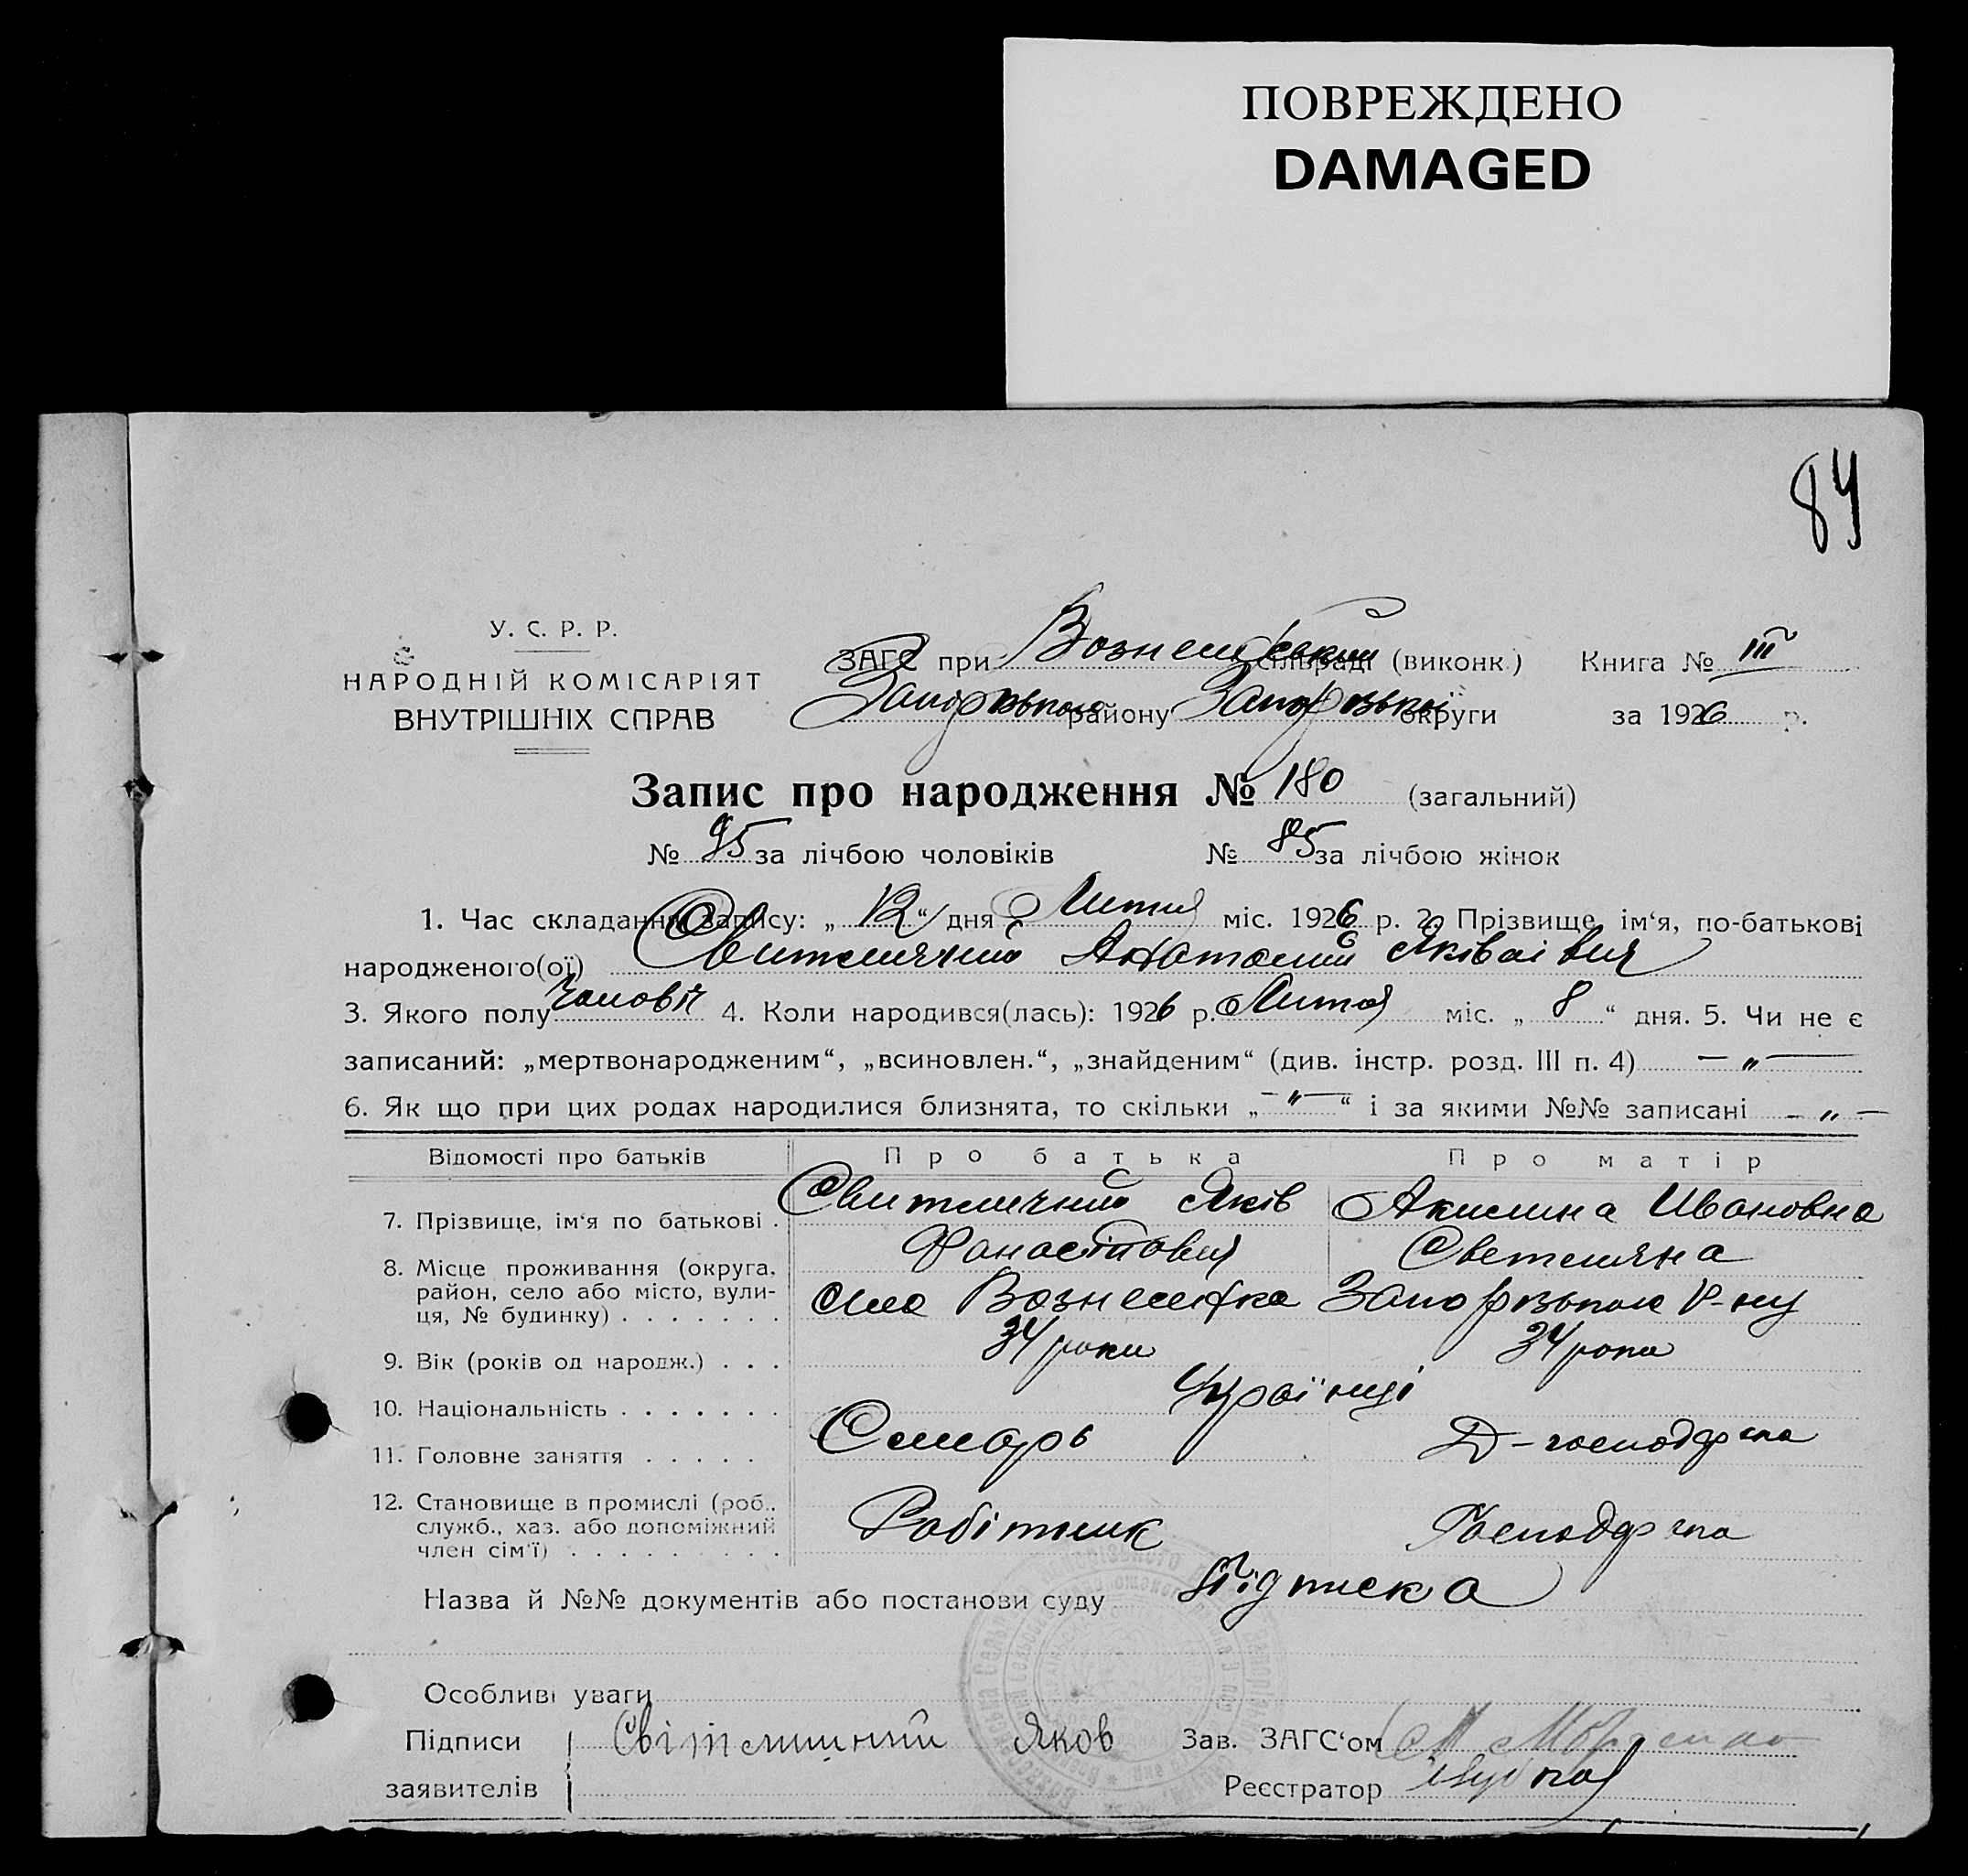 ПОВРЕЖДЕНО
DAMAGED
84
У. С. Р. Р.
НАРОДНІЙ КОМІСАРІЯТ
ВНУТРІШНІХ СПРАВ
ЗАГС при Вознесенський сільраді (виконк.) Книга № III
Запорізького району Запорізької округи за 1926 р.
Запис про народження № 180 (загальний)
№ 95 за лічбою чоловіків № 85 за лічбою жінок
1. Час складання запису: „ 12 “ дня Лютня міс. 1926 р. 2. Прізвище, ім‘я, по-батькові
народженого(ої) Свитличний Анатолий Яківлівич
3. Якого полу Чоловіч 4. Коли народився(лась): 1926 р. Лютня міс. „ 8 “ дня. 5. Чи не є
записаний: „мертвонародженим“, „всиновлен.“, „знайденим“ (див. інстр. розд. III п. 4) — „ —
6. Як що при цих родах народилися близнята, то скільки „ — " — “ і за якими №№ записані — „ —
Відомості про батьків Про батька Про матір
7. Прізвище, ім‘я по батькові . Свитличний Яків Акилина Ивановна
Фанасійович Светлична
8. Місце проживання (округа, район, село або місто, вули-ця, № будинку) . . . . . . . село Вознесенка Запорізького Р-ну
9. Вік (років од народж.) . . . 34 роки 34 роки
10. Національність . . . . . . . Українці
11. Головне заняття . . . . . Слюсарь Д-господарка
12. Становище в промислі (роб., служб., хаз. або допоміжний член сім‘ї) . . . . . . . . . Робітник Господарка
Назва й №№ документів або постанови суду Підписка
Особливі уваги
Підписи Світлишний Яков Зав. ЗАГС‘ом
заявителів Реєстратор